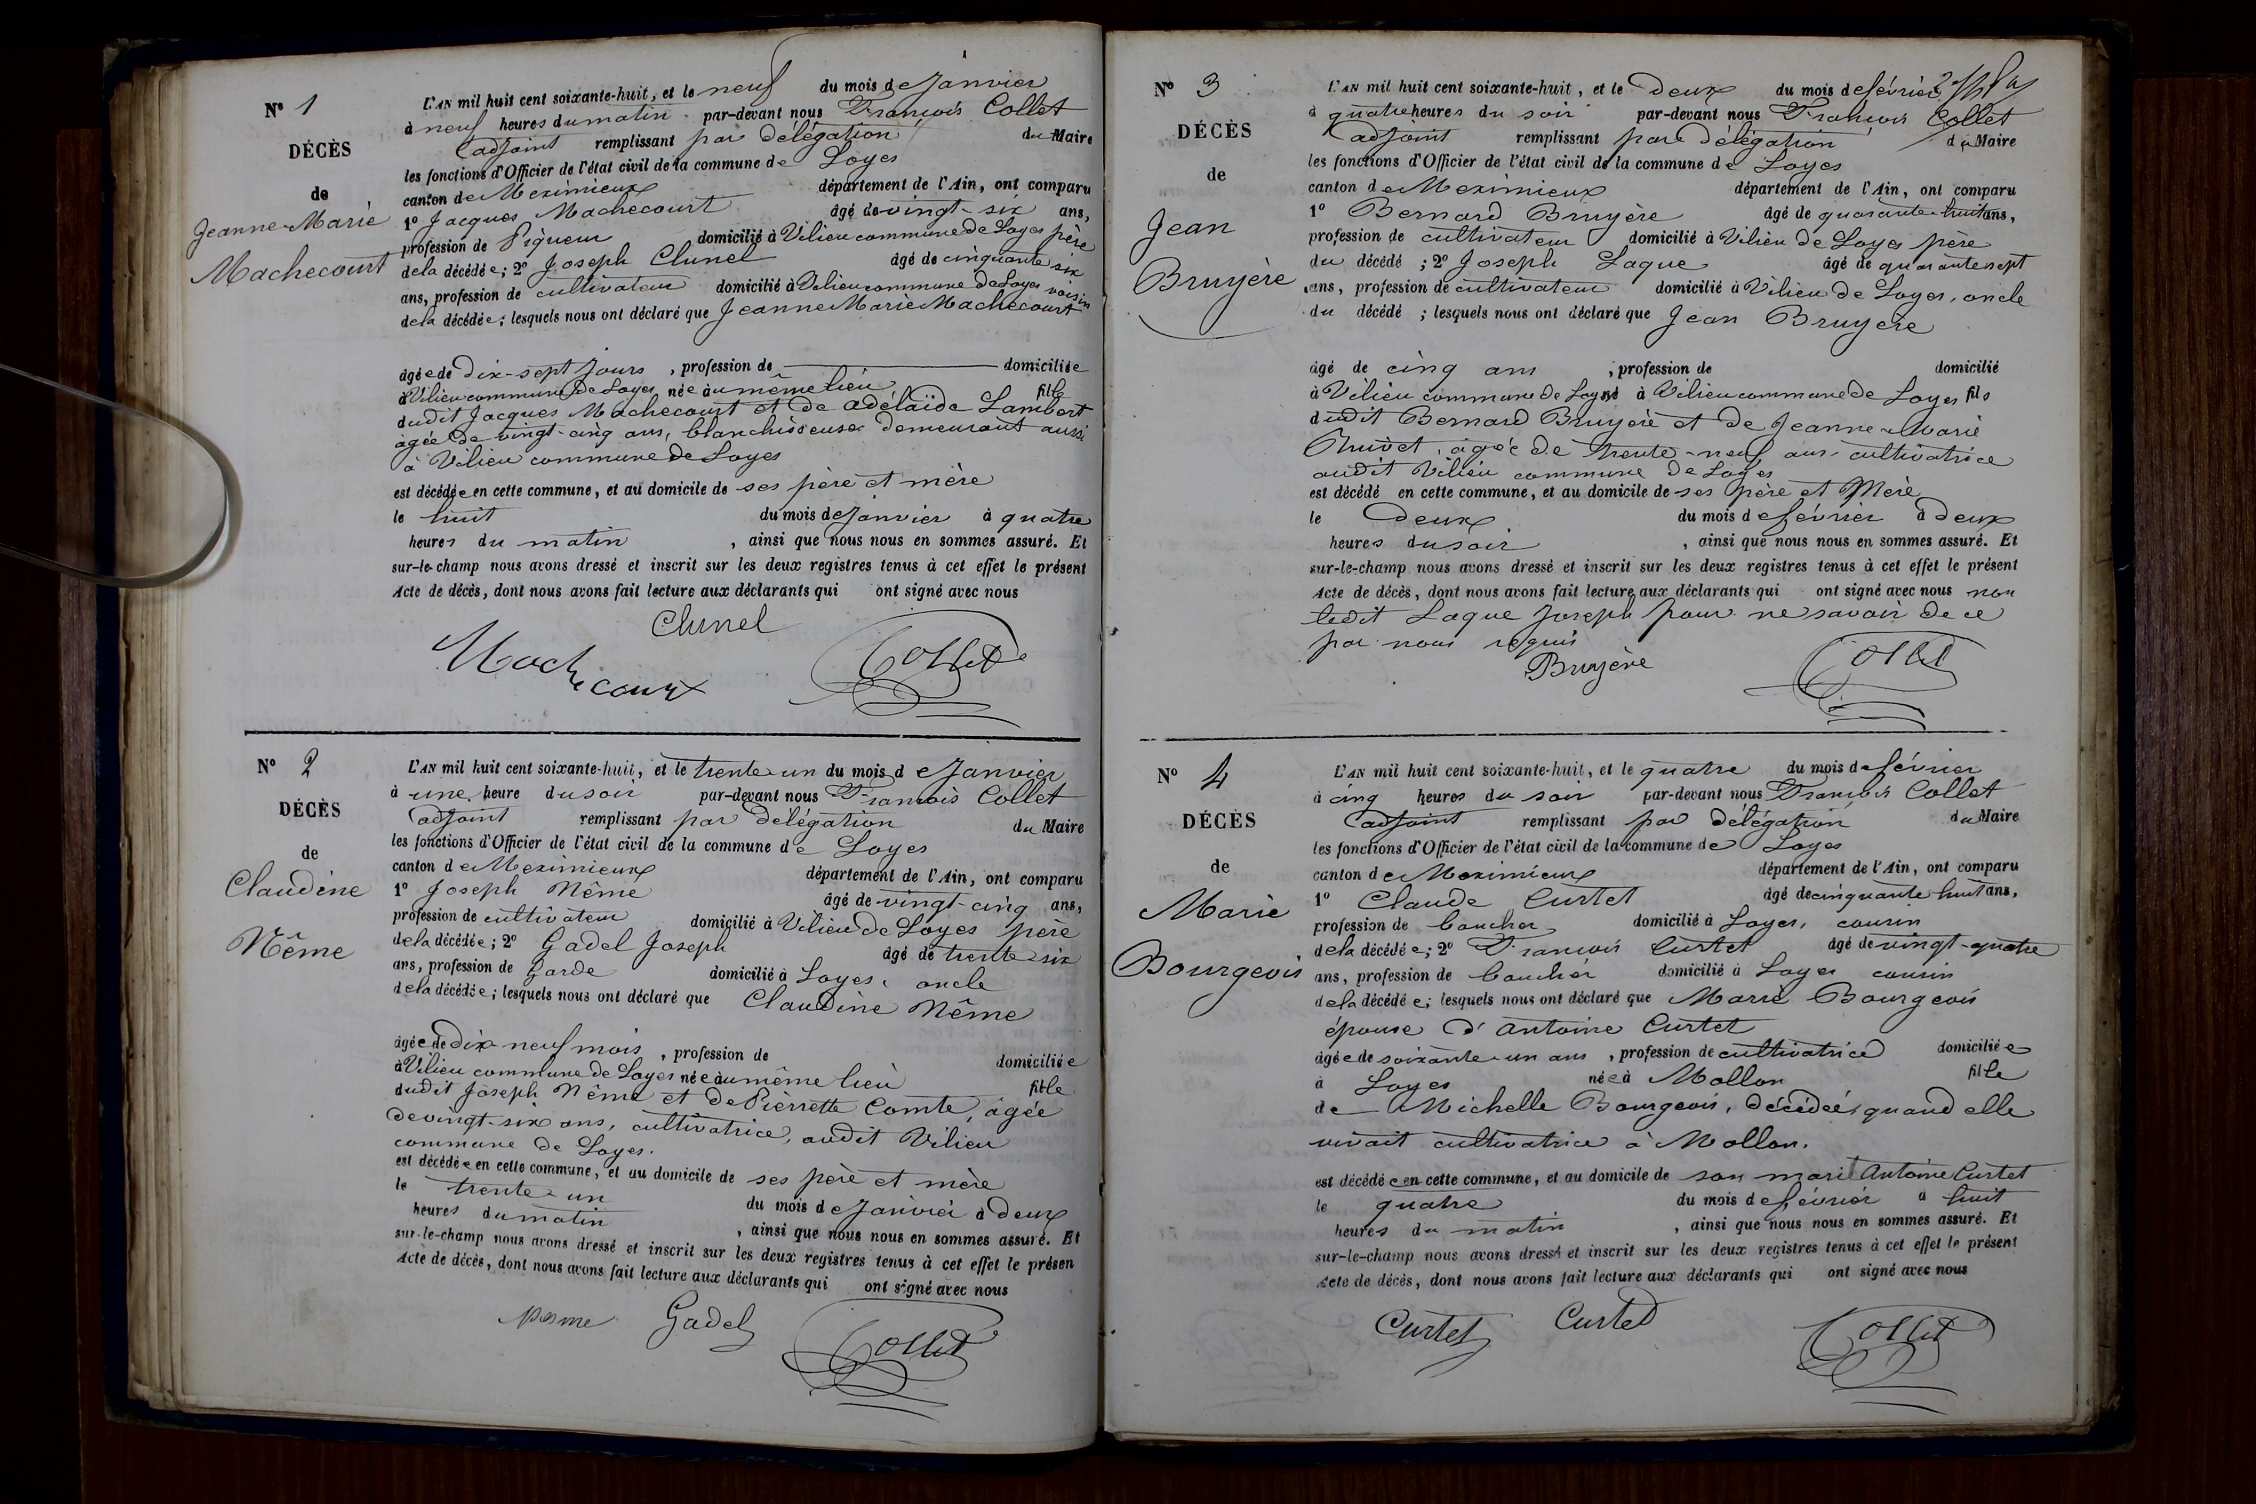 N° 1
DÉCÈS
de
Jeanne-Marie
Machecourt
L'AN mil huit cent soixante-huit, et le neuf du mois de Janvier
à neuf heures du matin par-devant nous François Collet
adjoint remplissant par délégation du Maire
les fonctions d'Officier de l'état civil de la commune de Loyes
canton de Meximieux département de l'Ain, ont comparu
1° Jacques Machecourt âgé de vingt-six ans,
profession de Piqueur domicilié à Vilieu commune de Loyes père
de la décédée; 2° Joseph Clunel âgé de cinquante six
ans, profession de cultivateur domicilié à Vilieu commune de Loyes voisin
de la décédée; lesquels nous ont déclaré que Jeanne Marie Machecourt
âgée de dix-sept jours, profession de domiciliée
à Vilieu commune de Loyes née au même lieu fille
dudit Jacques Machecourt et de adélaïde Lambert
âgée de vingt-cinq ans, blanchisseuse demeurant aussi
à Vilieu commune de Loyes
est décédée en cette commune, et au domicile de ses père et mère
le huit du mois de Janvier à quatre
heures du matin, ainsi que nous nous en sommes assuré. Et
sur-le-champ nous avons dressé et inscrit sur les deux registres tenus à cet effet le présent
Acte de décès, dont nous avons fait lecture aux déclarants qui ont signé avec nous
Clunel
Machecourt Collet
N° 2
DÉCÈS
de
Claudine
Nême
L'AN mil huit cent soixante-huit, et le trente-un du mois de Janvier
à une heure du soir par-devant nous François Collet
adjoint remplissant par délégation du Maire
les fonctions d'Officier de l'état civil de la commune de Loyes
canton de Meximieux département de l'Ain, ont comparu
1° Joseph Nême âgé de vingt-cinq ans,
profession de cultivateur domicilié à Vilieu de Loyes père
de la décédée; 2° Gadel Joseph âgé de trente-six
ans, profession de Garde domicilié à Loyes, oncle
de la décédée; lesquels nous ont déclaré que Claudine Nême
âgée de dix-neuf mois, profession de domiciliée
à Vilieu commune de Loyes née au même lieu fille
dudit Joseph Nême et de Pierrette Comte, âgée
de vingt-six ans, cultivatrice, audit Vilieu
commune de Loyes.
est décédée en cette commune, et au domicile de ses père et mère
le trente-un du mois de Janvier à deux
heures du matin, ainsi que nous nous en sommes assuré. Et
sur-le-champ nous avons dressé et inscrit sur les deux registres tenus à cet effet le présen
Acte de décès, dont nous avons fait lecture aux déclarants qui ont signé avec nous
Gadel Collet
N° 3
DÉCÈS
de
Jean
Bruyère
L'AN mil huit cent soixante-huit, et le deux du mois de février
à quatre heures du soir par-devant nous François Collet
adjoint remplissant par délégation du Maire
les fonctions d'Officier de l'état civil de la commune de Loyes
canton de Meximieux département de l'Ain, ont comparu
1° Bernard Bruyère âgé de quarante-huit ans,
profession de cultivateur domicilié à Vilieu de Loyes père
du décédé; 2° Joseph Laque âgé de quarante sept
ans, profession de cultivateur domicilié à Vilieu de Loyes, oncle
du décédé; lesquels nous ont déclaré que Jean Bruyère
âgé de cinq ans, profession de domicilié
à Vilieu commune de Loyes né à Vilieu commune de Loyes fils
dudit Bernard Bruyère et de Jeanne-Marie
âgée de trente-neuf ans cultivatrice
audit Vilieu commune de Loyes
est décédé en cette commune, et au domicile de ses Père et Mère
le deux du mois de février à deux
heures du soir, ainsi que nous nous en sommes assuré. Et
sur-le-champ nous avons dressé et inscrit sur les deux registres tenus à cet effet le présent
Acte de décès, dont nous avons fait lecture aux déclarants qui ont signé avec nous non
ledit Laque Joseph pour ne savoir de ce
par nous requis
Bruyère Collet
N° 4
DÉCÈS
de
Marie
Bourgeois
L'AN mil huit cent soixante-huit, et le quatre du mois de février
à cinq heures du soir par-devant nous François Collet
adjoint remplissant par délégation du Maire
les fonctions d'Officier de l'état civil de la commune de Loyes
canton de Meximieux département de l'Ain, ont comparu
1° Claude Curtet âgé de cinquante huit ans,
profession de boucher domicilié à Loyes, cousin
de la décédée; 2° François Curtet âgé de vingt-quatre
ans, profession de boucher domicilié à Loyes cousin
de la décédée; lesquels nous ont déclaré que Marie Bourgeois
épouse d'antoine Curtet
âgée de soixante-un ans, profession de cultivatrice domiciliée
à Loyes née à Mollon fille
de Michelle Bourgeois, décédée, quand elle
vivait cultivatrice à Mollon.
est décédée en cette commune, et au domicile de son mari Antoine Curtet
le quatre du mois de février à huit
heures du matin, ainsi que nous nous en sommes assuré. Et
sur-le-champ nous avons dressé et inscrit sur les deux registres tenus à cet effet le présent
Acte de décès, dont nous avons fait lecture aux déclarants qui ont signé avec nous
Curtet Curtet Collet